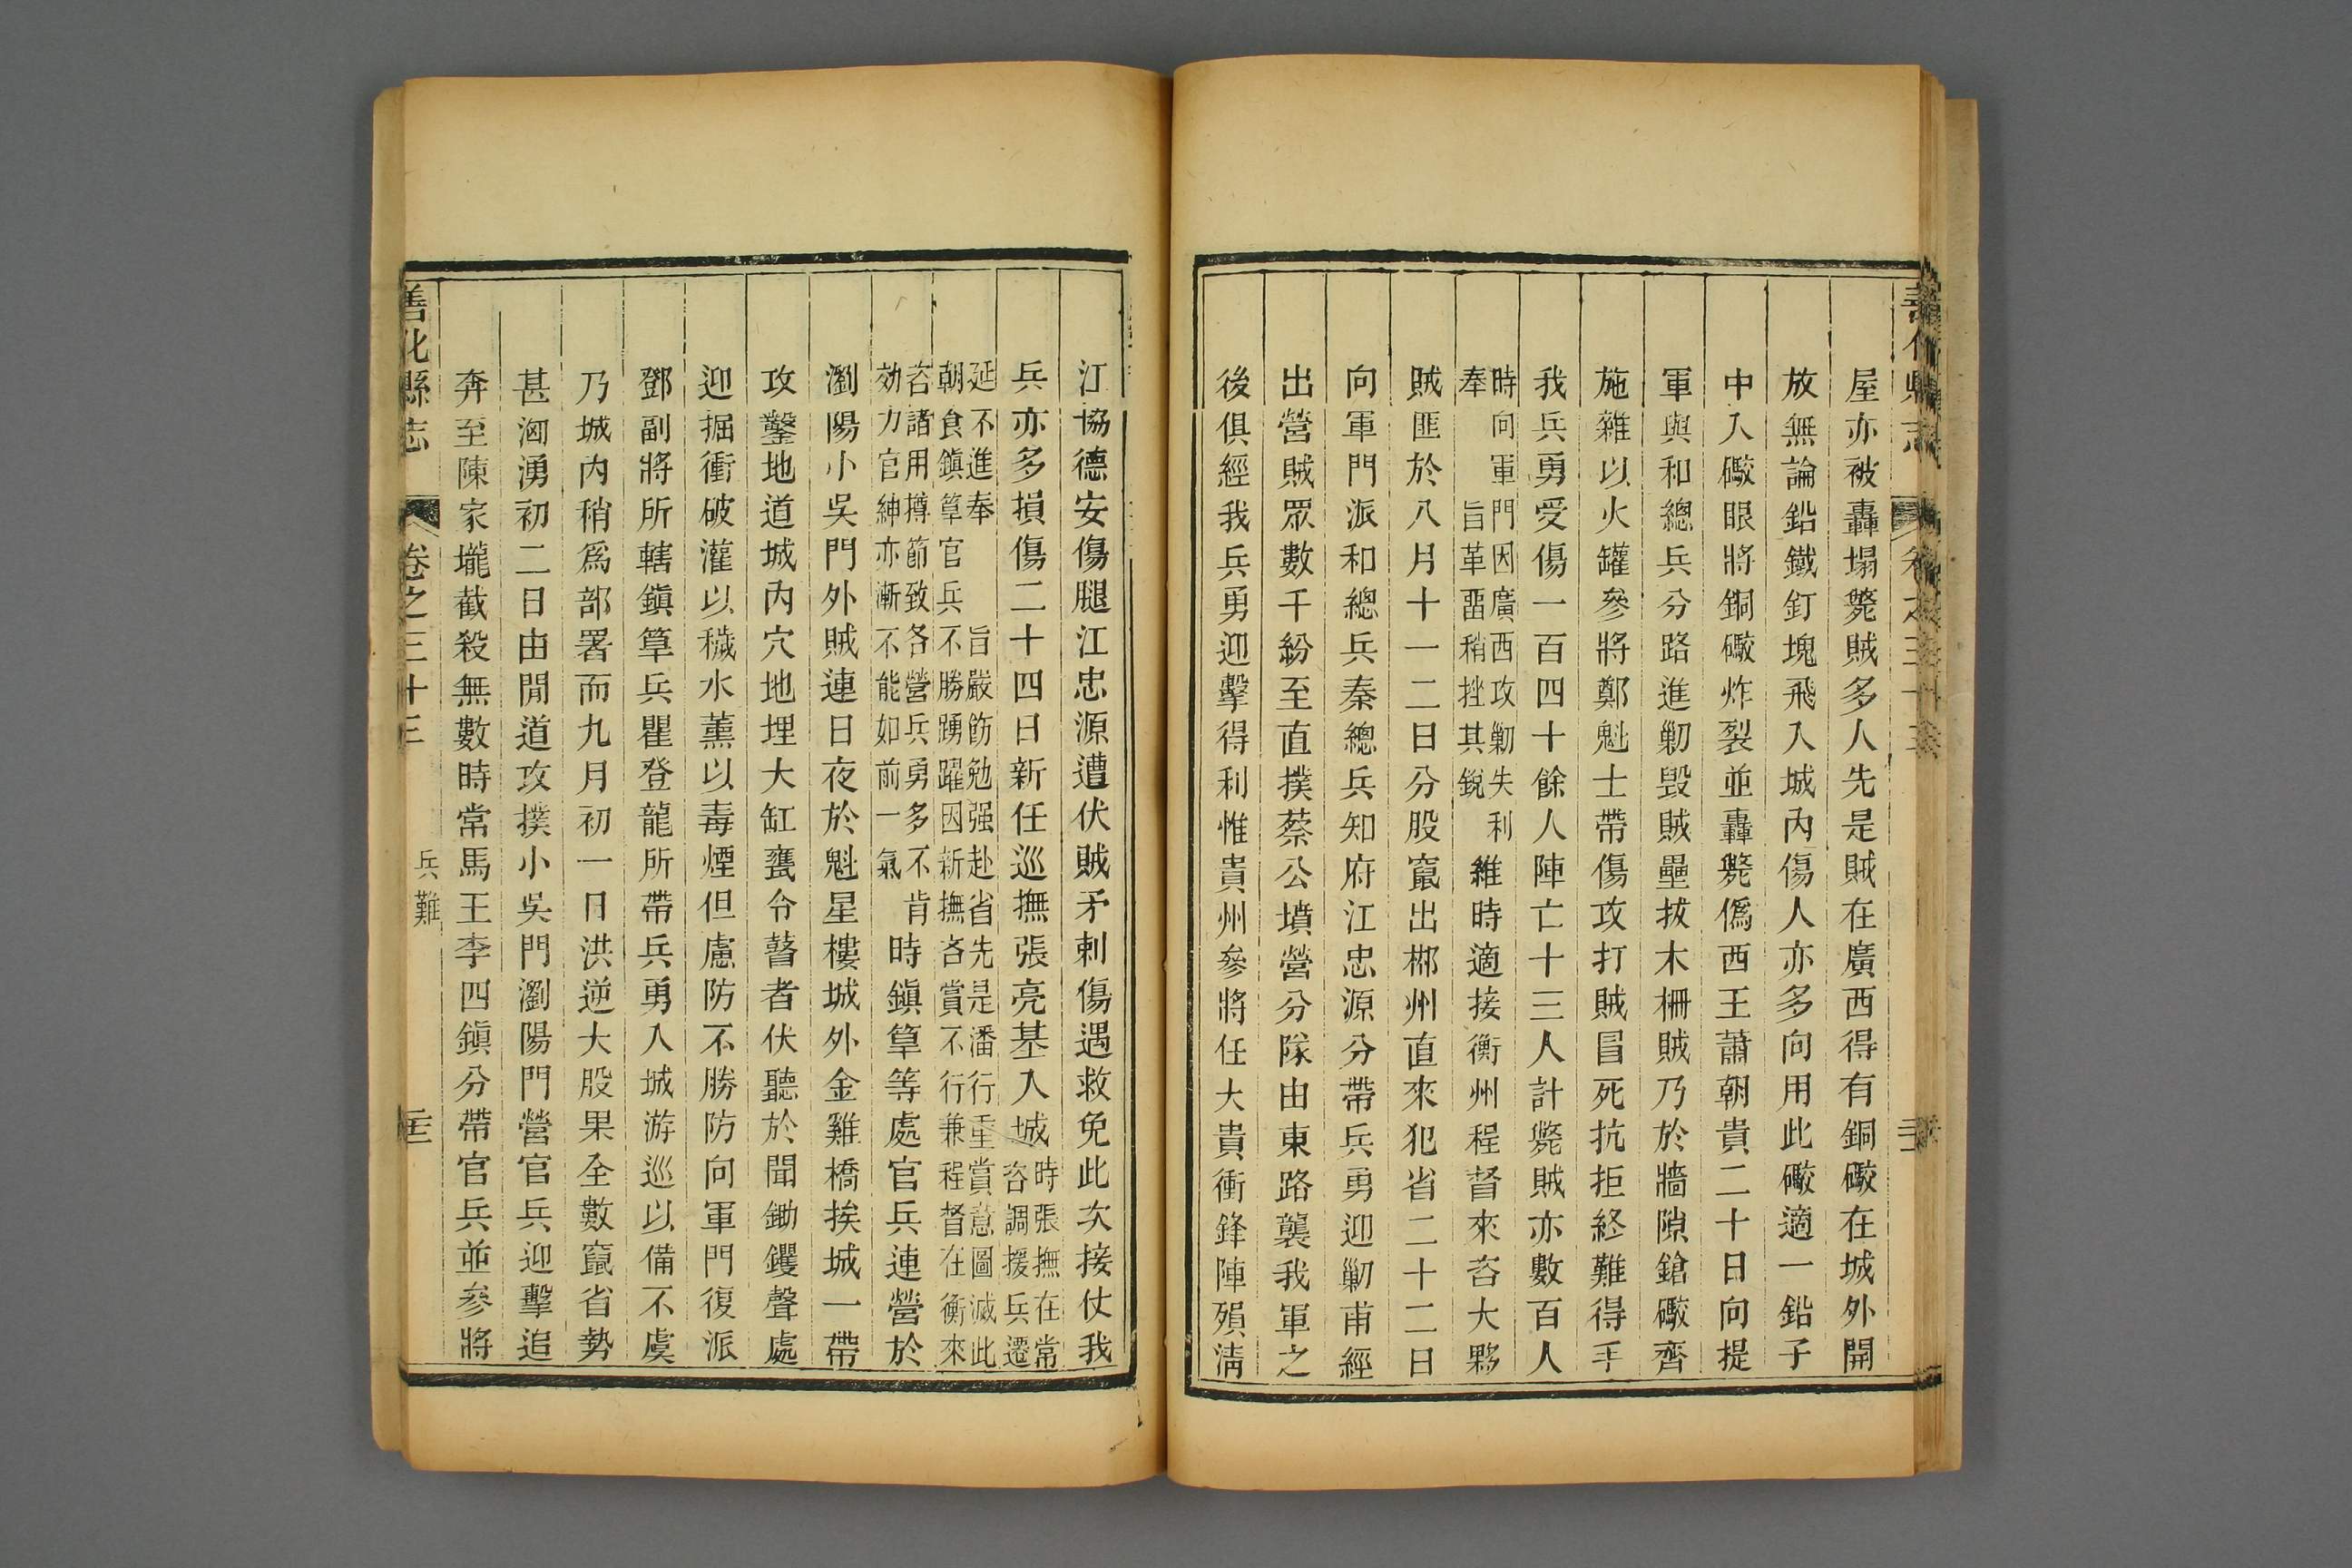 屋亦被轟塌斃賊多人先是賊在廣西得有銅礮在城外開
放無論鉛鐵釘塊飛入城內傷人亦多向用此礮適一鉛子
中入礮眼將銅礮炸裂並轟斃僞西王蕭朝貴二十日向提
軍與和總兵分路進剿毀賊壘拔木柵賊乃於牆隙鎗礮齊
施雜以火罐參將鄭魁士帶傷攻打賊冒死抗拒終難得手
我兵勇受傷一百四十餘人陣亡十三人計斃賊亦數百人
時向軍門因廣西攻剿失利
奉 旨革畱稍挫其銳
維時適接衡州程督來咨大夥
賊匪於八月十一二日分股竄出郴州直來犯省二十二日
向軍門派和總兵秦總兵知府江忠源分帶兵勇迎剿甫經
出營賊眾數千紛至直撲蔡公墳營分隊由東路襲我軍之
後俱經我兵勇迎擊得利惟貴州參將任大貴衝鋒陣殞淸
江協德安傷腿江忠源遭伏賊矛刺傷遇救免此次接仗我
兵亦多損傷二十四日新任巡撫張亮基入城
時張撫在常
咨調援兵遷
延不進奉 旨嚴飭勉强赴省先是潘行重賞意圖滅此
朝食鎭筸官兵不勝踴躍因新撫吝賞不行兼程督在衡來
咨諸用撙節致各營兵勇多不肯
効力官紳亦漸不能如前一氣
時鎭筸等處官兵連營於
瀏陽小吳門外賊連日夜於魁星樓城外金雞橋挨城一帶
攻鑿地道城內穴地埋大缸甕令瞽者伏聽於聞鋤钁聲處
迎掘衝破灌以穢水薰以毒煙但慮防不勝防向軍門復派
鄧副將所轄鎭筸兵瞿登龍所帶兵勇入城游巡以備不虞
乃城內稍爲部署而九月初一日洪逆大股果全數竄省勢
甚洶湧初二日由閒道攻撲小吳門瀏陽門營官兵迎擊追
奔至陳家壠截殺無數時常馬王李四鎭分帶官兵並參將
善化縣志 卷之三十三 兵難